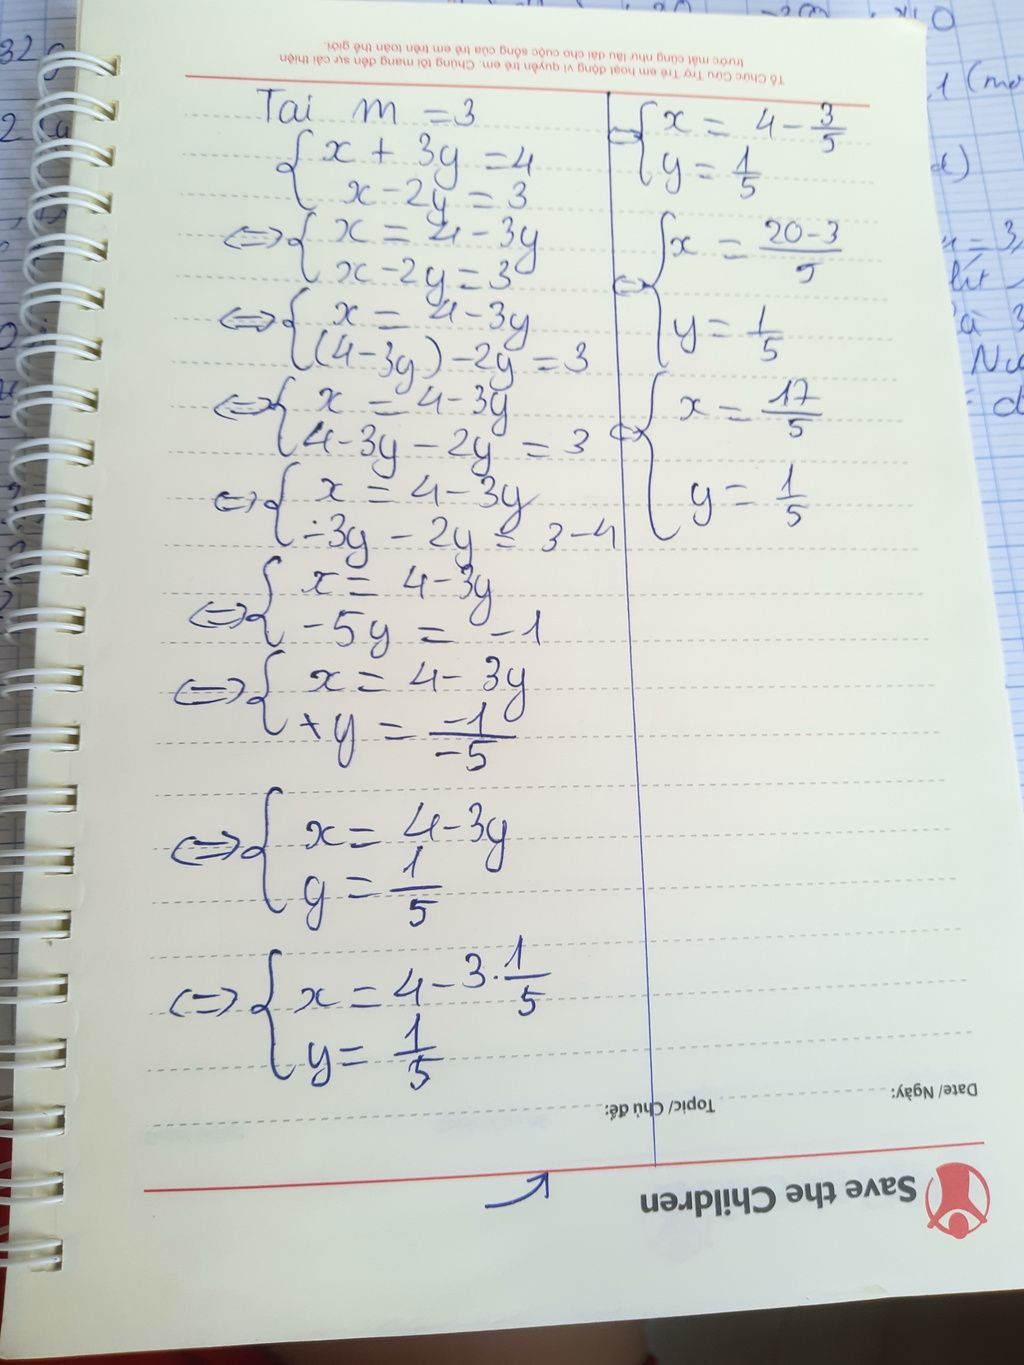 Tổ Chức Cứu Trợ Trẻ em hoạt động vì quyền trẻ em. Chúng tôi mang đến sự cải thiện
trước mắt cũng như lâu dài cho cuộc sống của trẻ em trên toàn thế giới.
Tai m = 3
{ x + 3y = 4
x - 2y = 3
<=> { x = 4 - 3y
x - 2y = 3
<=> { x = 4 - 3y
(4 - 3y) - 2y = 3
<=> { x = 4 - 3y
4 - 3y - 2y = 3
<=> { x = 4 - 3y
-3y - 2y = 3 - 4
<=> { x = 4 - 3y
-5y = -1
<=> { x = 4 - 3y
+y = -1/-5
<=> { x = 4 - 3y
y = 1/5
<=> { x = 4 - 3 . 1/5
y = 1/5
<=> { x = 4 - 3/5
y = 1/5
<=> { x = 20-3/5
y = 1/5
<=> { x = 17/5
y = 1/5
Topic/ Chủ đề:
Date/ Ngày:
Save the Children